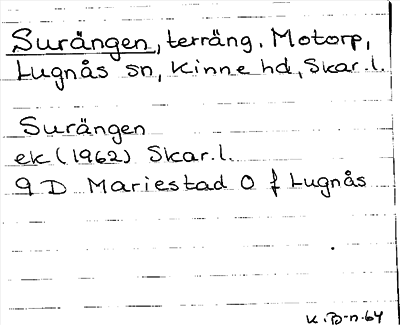 Surängen, terräng. Motorp,
Lugnås sn, Kinne hd, Skar.l.
Surängen
ek (1962) Skar.l.
9 D Mariestad O f Lugnås
K.B-n-64